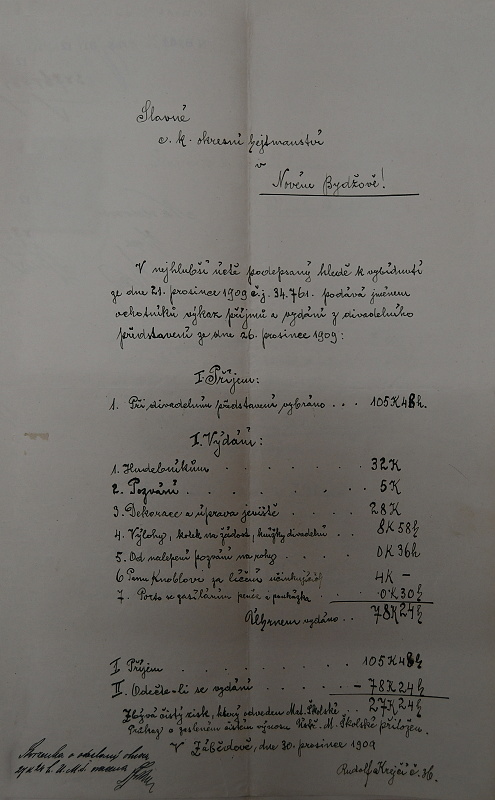 Slavné
c. k. okresní hejtmanství
v
Novém Bydžově!
V nejhlubší úctě podepsaný hledě k vybídnutí
ze dne 21. prosince 1909 č.j. 34.761. podává jménem
ochotníků výkaz příjmů a vydání z divadelního
představení ze dne 26. prosince 1909:
I. Příjem:
1. Při divadelním představení vybráno . . . 105K 48h.
I. Vydání:
1. Hudebníkům . . . . . . . 32K
2. Pozvání . . . . . . . 5K
3. Dekorace a úprava jeviště . . . . 28K
4. Výlohy, kolek na žádost, knížky divadelní . . 8K 58h
5. Od nalepení pozvání na rohy . . . . 0K 36h
6 Panu Knoblovi za líčení účinkujících 4K –
7. Porto se zasíláním peněz i poukázka . . 0K 30h
Úhrnem vydáno . . 78K 24h
I. Příjem . . . . . . . 105K 48h
II. Odečte-li se vydání . . . . – 78K 24h
Zbývá čistý zisk, který odveden Mat. Školské . . 27K 24h
Průkaz o zaslaném čistém výnosu Ústř. M. Školské přiložen.
V Zábědově, dne 30. prosince 1909
Rudolf Krejčí č. 36.
27 K 24 h Ú. M. Š.